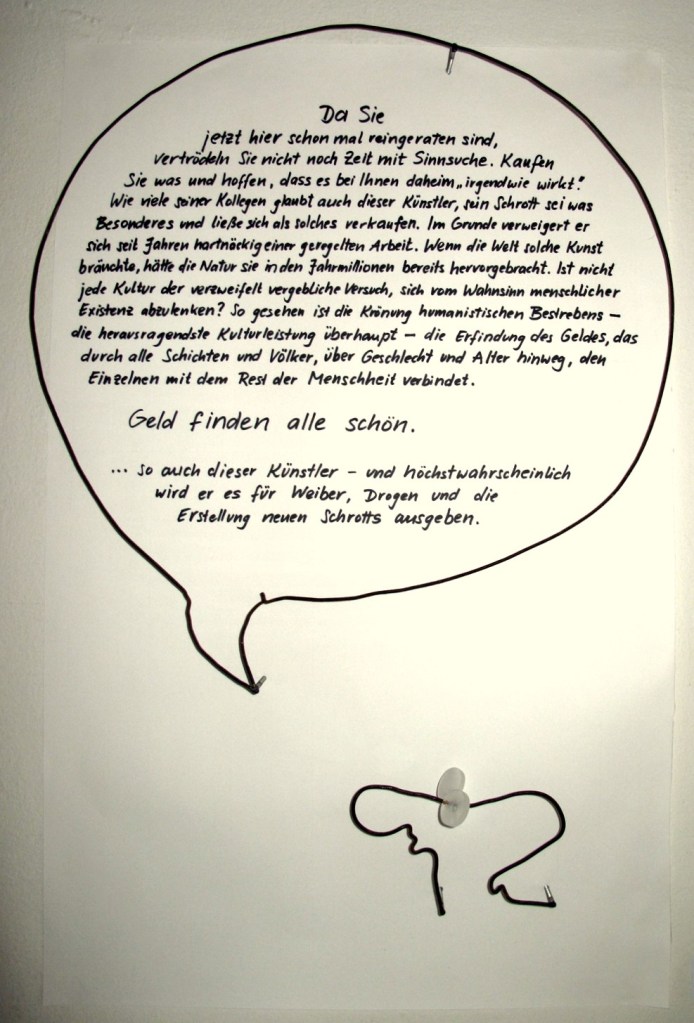 Da Sie
jetzt hier schon mal reingeraten sind,
vertrödeln Sie nicht noch Zeit mit Sinnsuche. Kaufen
Sie was und hoffen, dass es bei Ihnen daheim „irgendwie wirkt“.
Wie viele seiner Kollegen glaubt auch dieser Künstler, sein Schrott sei was
Besonderes und ließe sich als solches verkaufen. Im Grunde verweigert er
sich seit Jahren hartnäckig einer geregelten Arbeit. Wenn die Welt solche Kunst
bräuchte, hätte die Natur sie in den Jahrmillionen bereits hervorgebracht. Ist nicht
jede Kultur der verzweifelt vergebliche Versuch, sich vom Wahnsinn menschlicher
Existenz abzulenken? So gesehen ist die Krönung humanistischen Bestrebens –
die herausragendste Kulturleistung überhaupt – die Erfindung des Geldes, das
durch alle Schichten und Völker, über Geschlecht und Alter hinweg, den
Einzelnen mit dem Rest der Menschheit verbindet.
Geld finden alle schön.
... so auch dieser Künstler – und höchstwahrscheinlich
wird er es für Weiber, Drogen und die
Erstellung neuen Schrotts ausgeben.